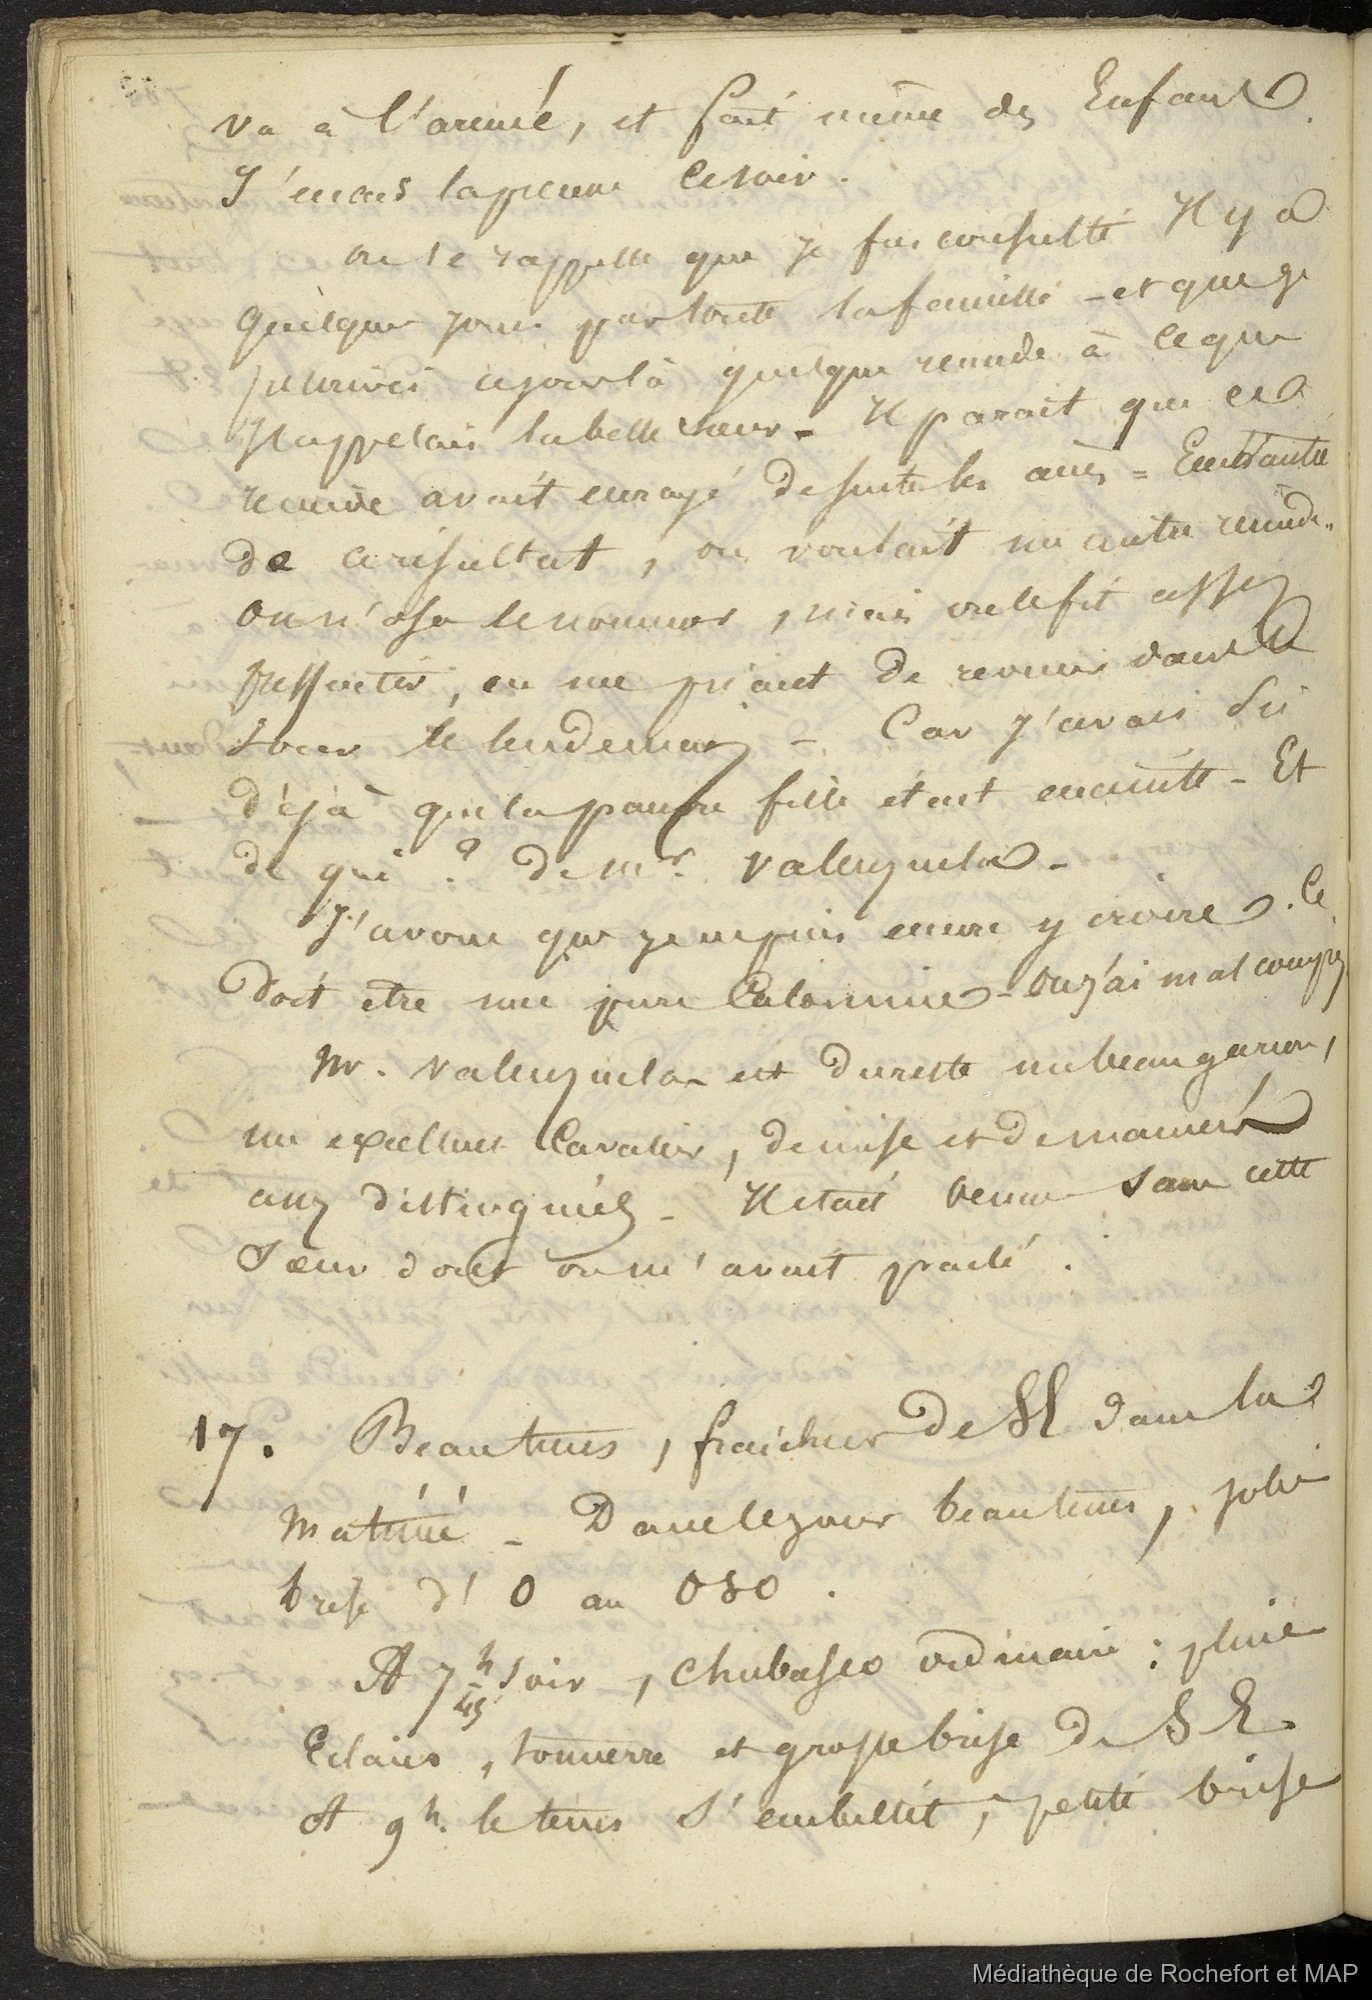 va à l'armée, et fait même des Enfants.
J'en ai la preuve ce soir.
on se rappelle que je fus consulté Il y a
quelques jours par toute la famille - et que je
prescrivis ce jour là quelque remède à ce que
J'appelais la belle soeur - Il parait que ce
remède avait enrayé de suite les
de ce résultat, on voulait un autre remède..
on n'osa le nommer, mais on le fit assez
pressentir, en me priant de revenir dans la
soirée le lendemain - Car J'avais Su
déjà que la pauvre fille était enceinte - Et
de qui? de mr. Valenzuela -
J'avoue que je ne puis encore y croire. Ce
doit etre une pure Calomnie - ou j'ai mal compris
Mr. Valenzuela est du reste un beau garçon,
un excellent Cavalier, de mise et de manières
assez distinguées - Il était venu sans cette
Soeur dont on m'avait parlé.
17. Beau tems, fraicheur de SE dans la
matinée - Dans le jour beau tems, jolie
brise d' O au OSO.
A 7h 45 soir, chubasco ordinaire : pluie
Eclairs, tonnerre et grosse brise de SE
A 9h. le tems s'embellit, petite brise
Médiathèque de Rochefort et MAP